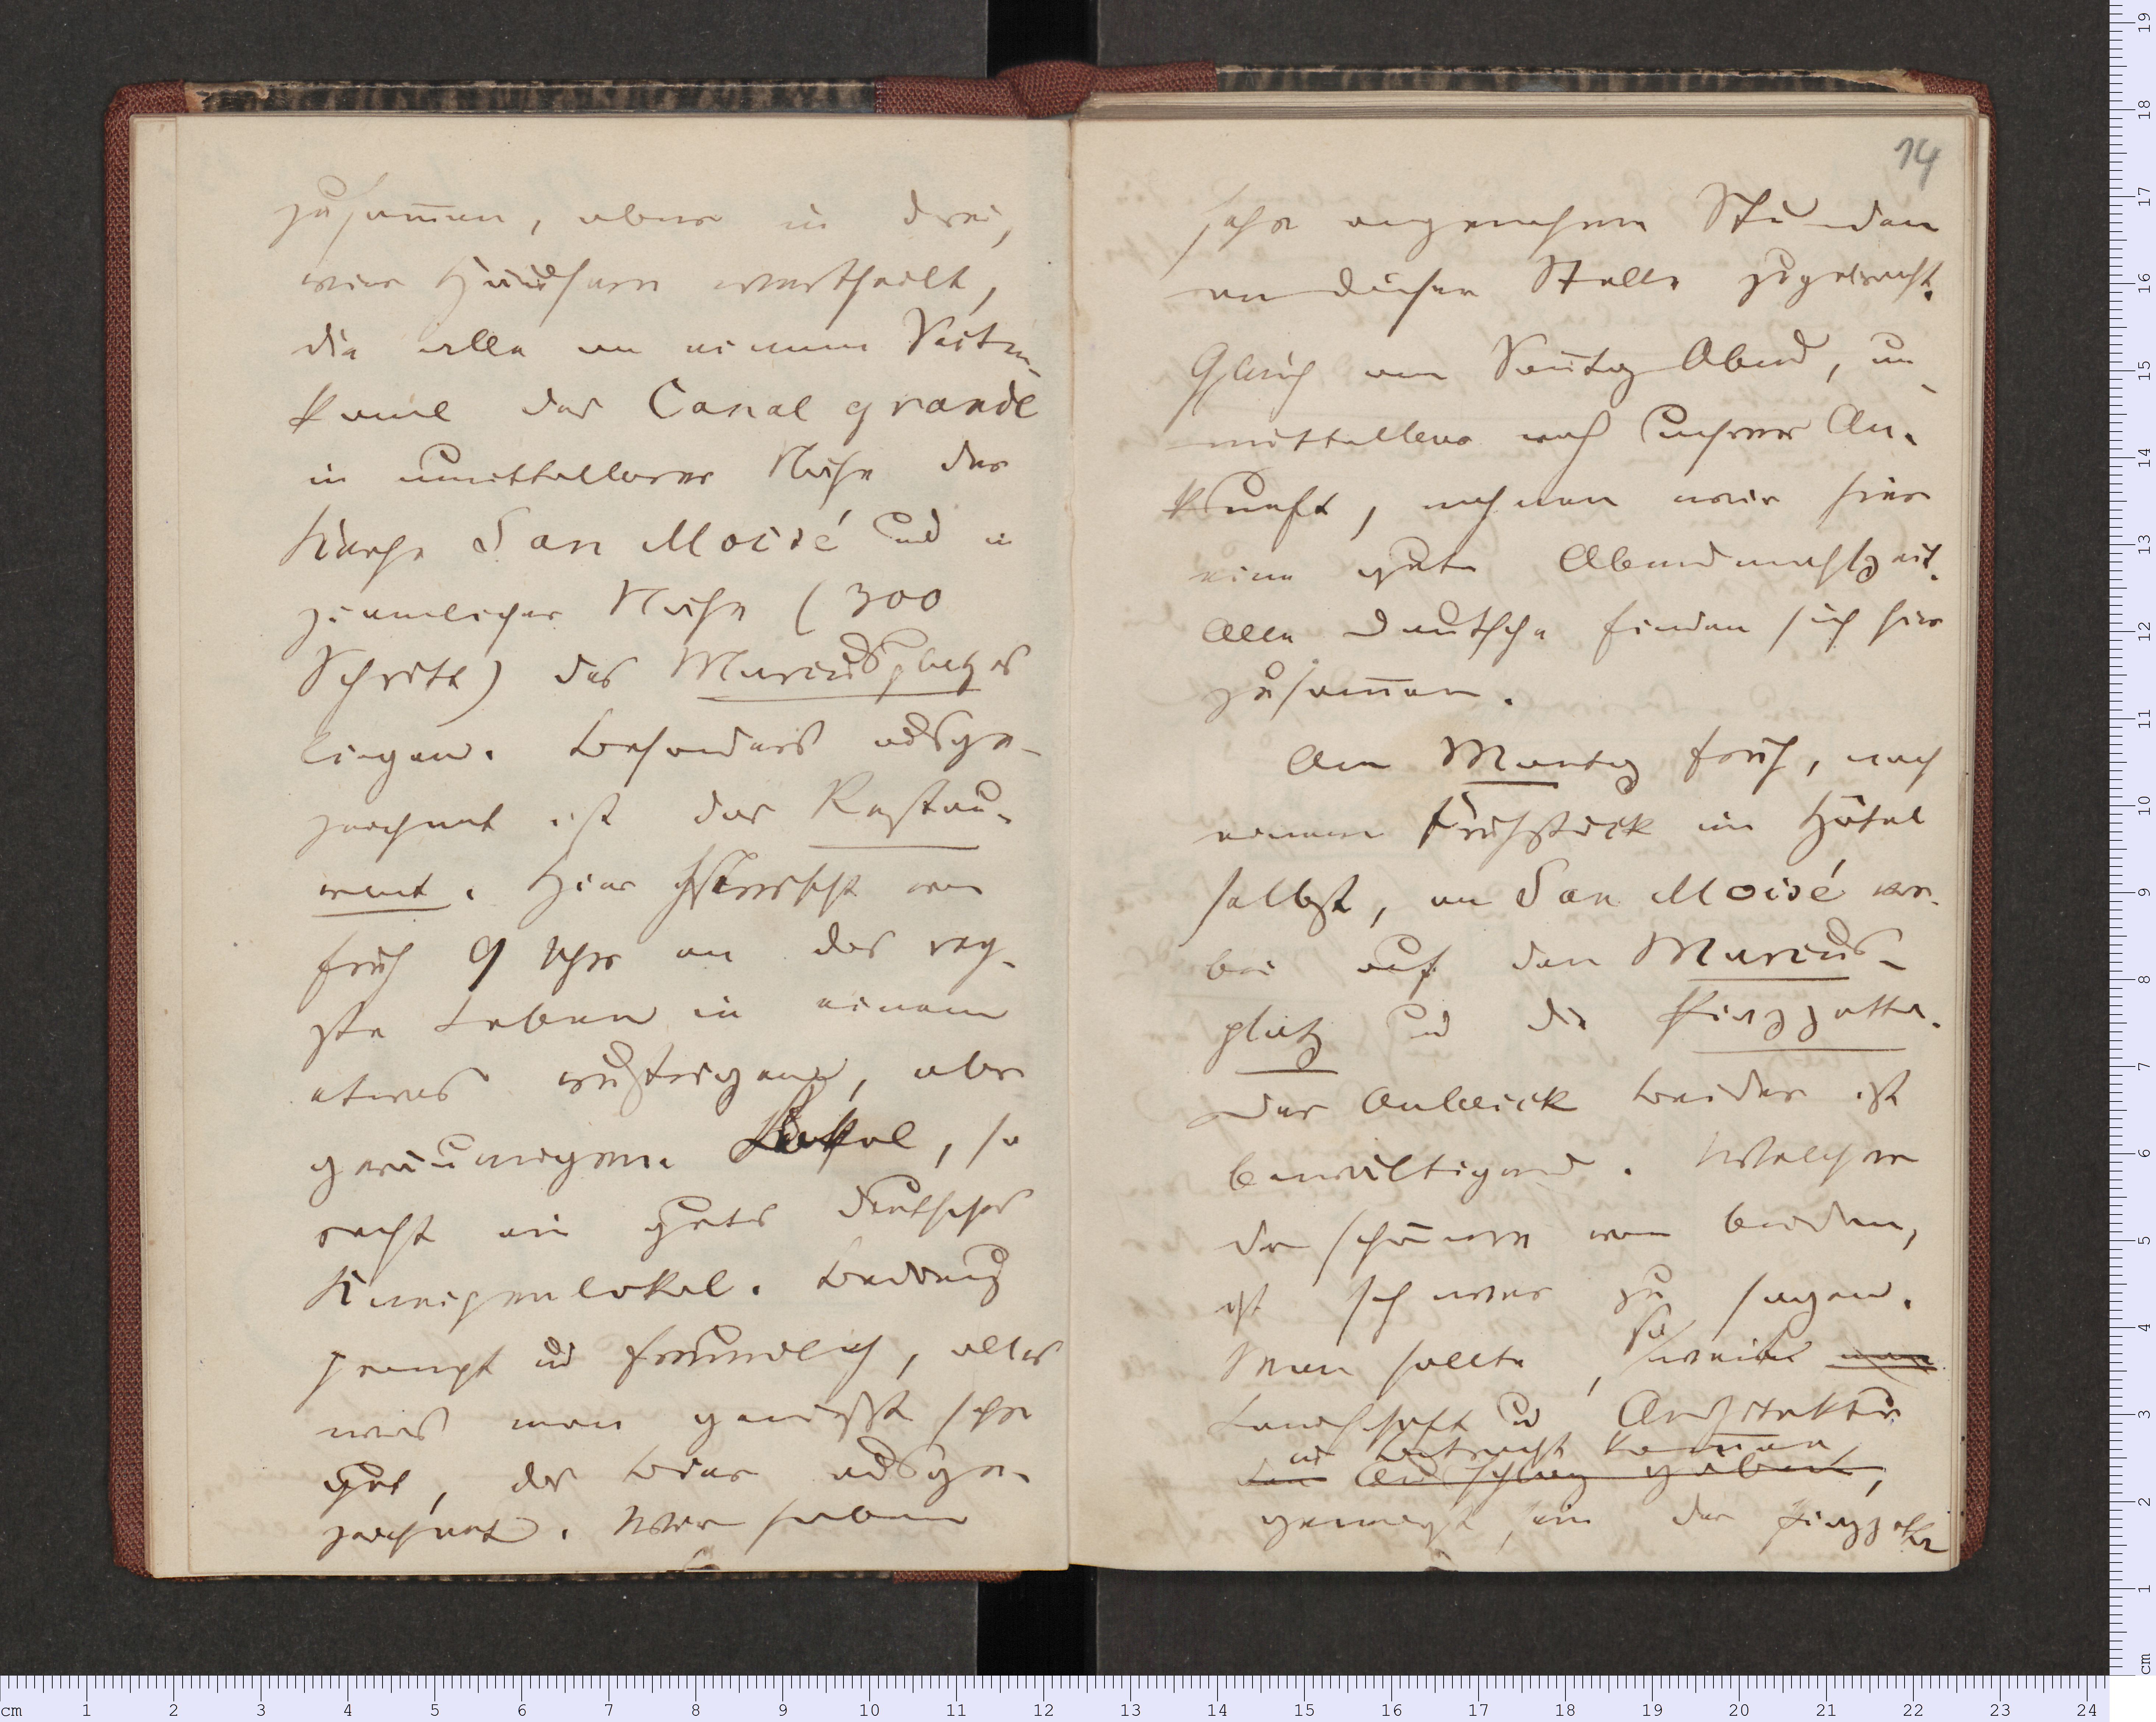 zusam̄en, aber in drei,
vier Häusern vertheilt,
die alle an einem Seiten-
kanal des Canal grande
in unmittelbarer Nähe der
Kirche San Moisé und in
ziemlicher Nähe (300
Schritt) des Marcusplatzes
liegen. Besonders ausge-
zeichnet ist das Restau-
rant. Hier herrscht von
früh 9 Uhr an das reg-
ste Leben in einem
etwas
geräumigen Lokal, so
recht ein gutes deutsches
Kneipenlokal. Bedienung
prompt und freundlich, alles
was man genießt sehr
gut, das Bier ausge-
zeichnet. Wir haben
14
sehr angenehme Stunden
an dieser Stelle zugebracht.
Gleich am Son̄tag Abend, un-
mittelbar nach unsrer An-
kunft, nahmen wir hier
eine gute Abendmahlzeit.
Alle Deutsche finden sich hier
zusam̄en.
Am Montag früh, nach
einem Frühstück im Hôtel
selbst, an San Moisé vor-
bei auf den Marcus-
platz und die Piazzetta.
Der Anblick beider ist
bewältigend. Welcher
der schönre von beiden,
ist schwer zu sagen.
Man sollte, so weit
Landschaft und Architektur
in Betracht kom̄en,
den Ausschlag geben,
geneigt sein der Piazzetta